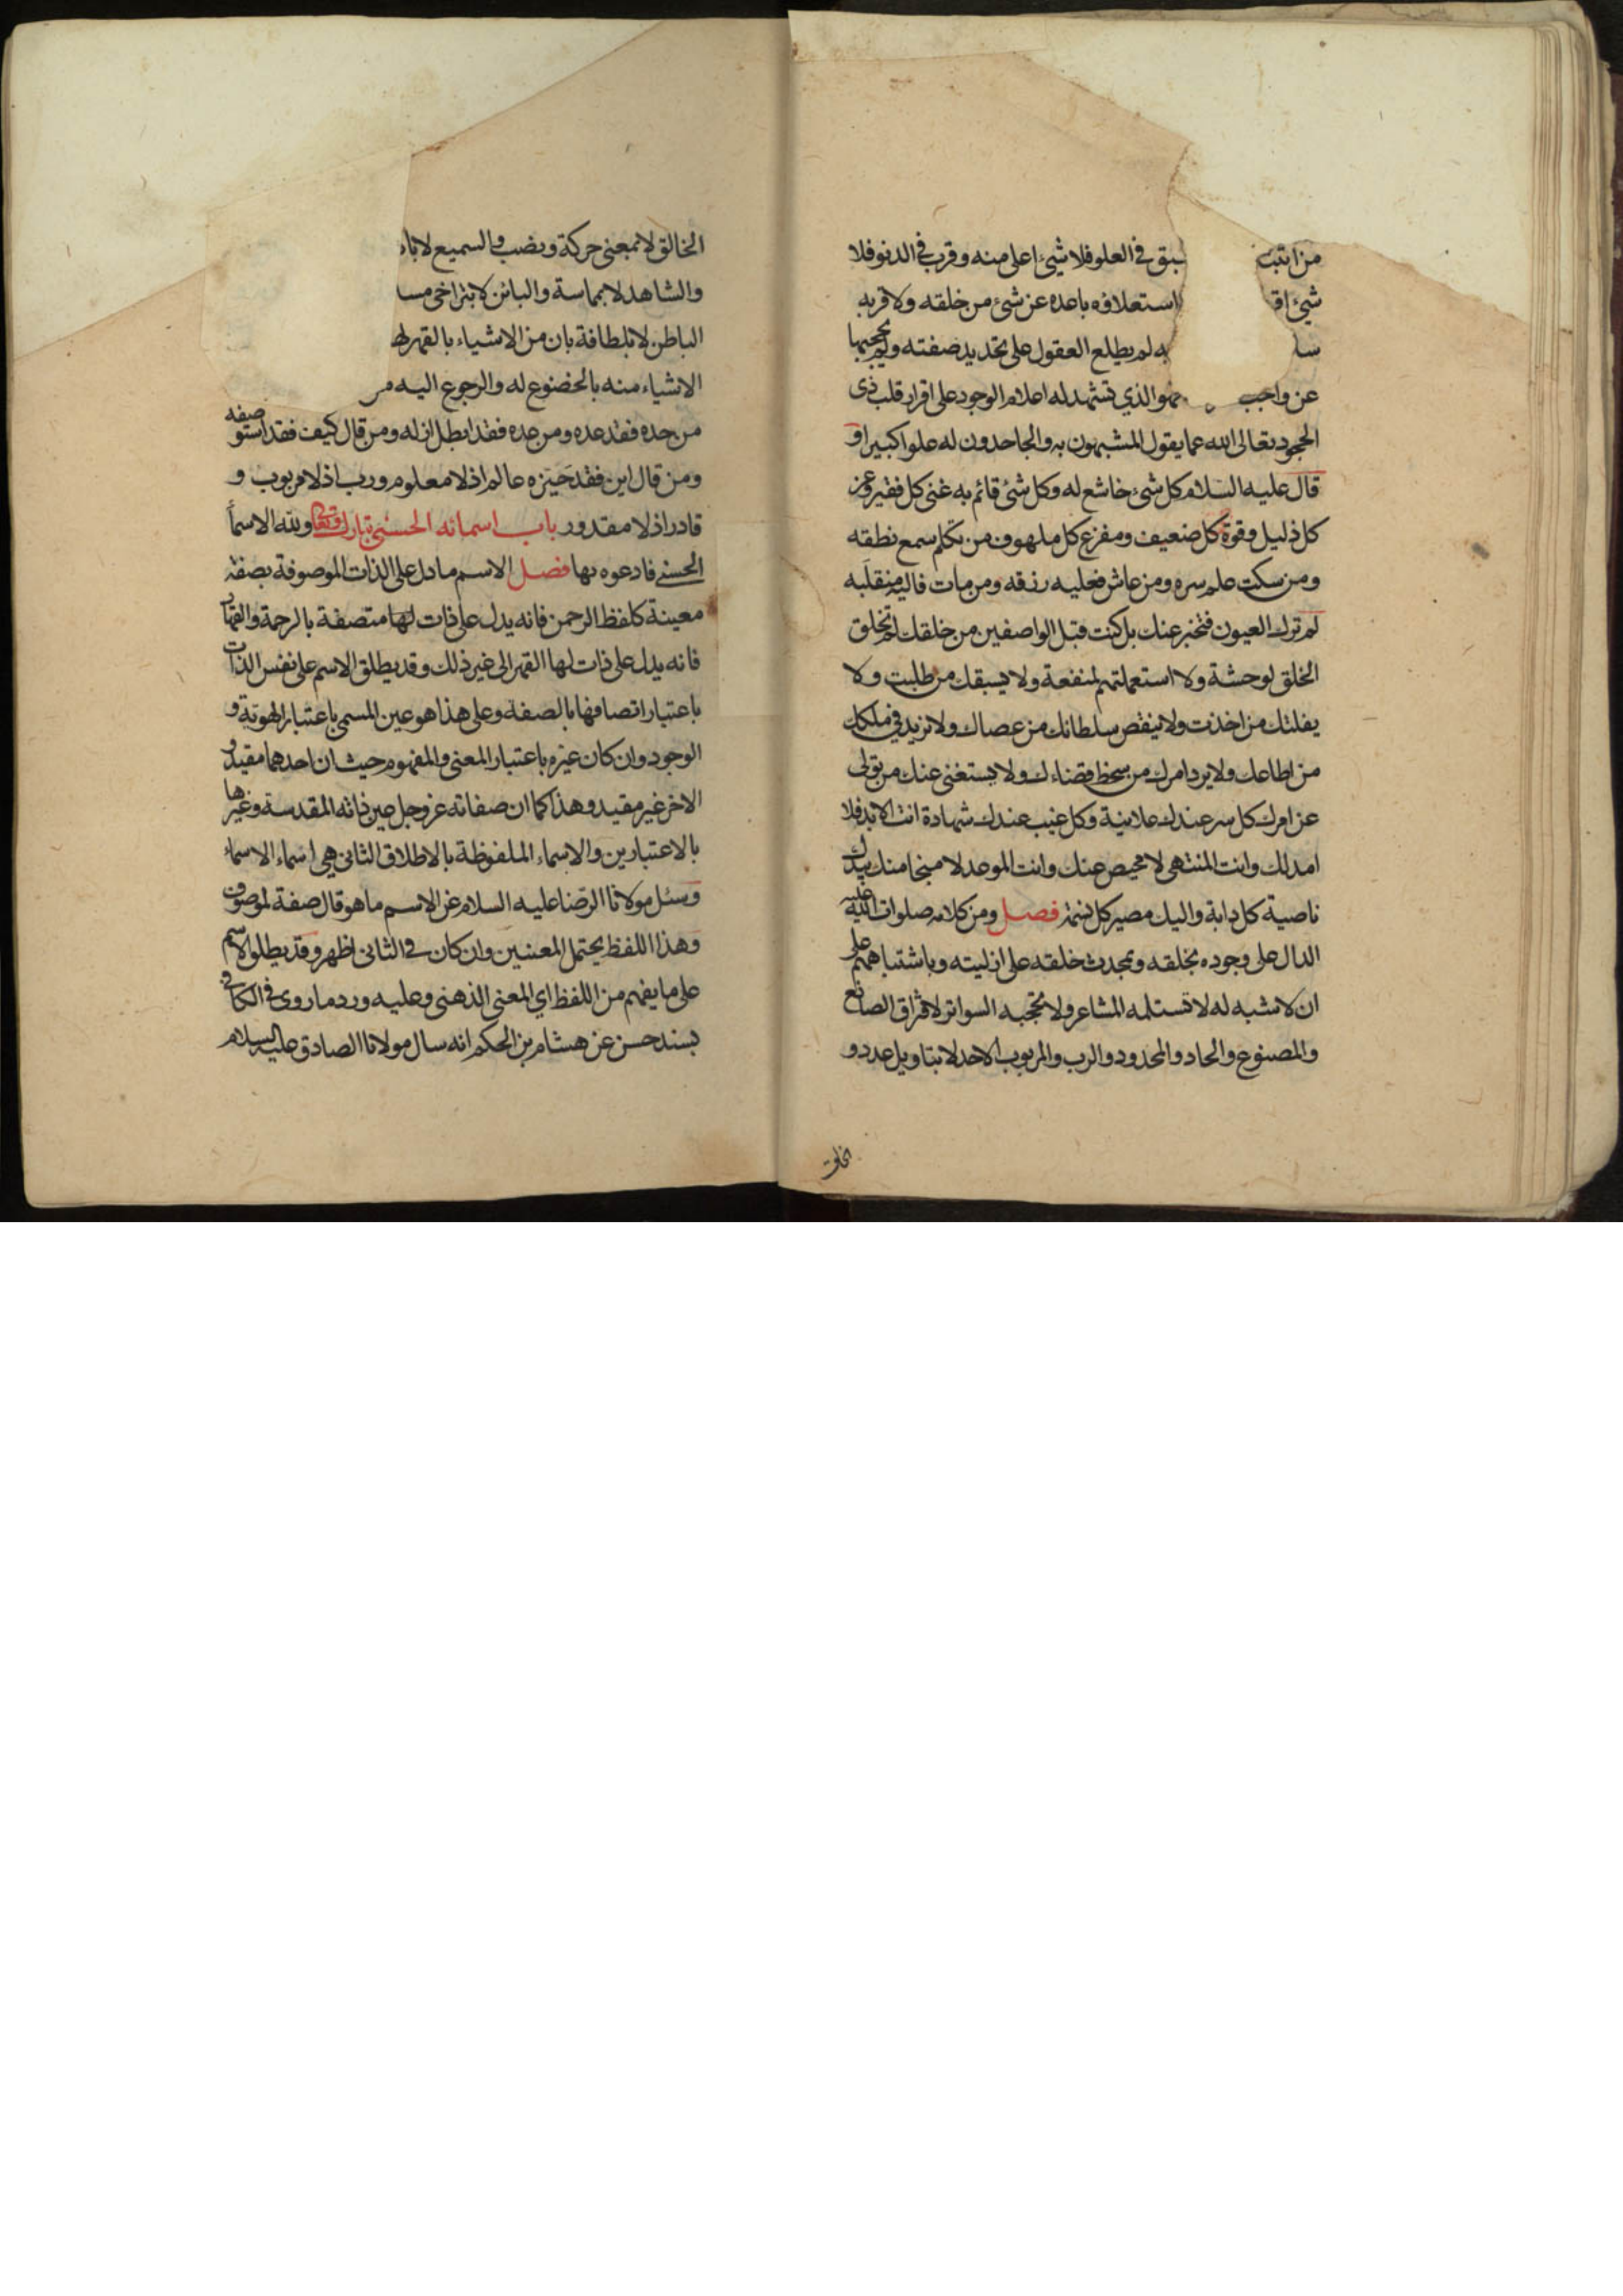 من اثبت سبق في العلو فلا شيء اعلى منه وقرب في الدنو فلا
شيء اقـ استعلاؤه باعده عن شيء من خلقه ولا قربه
سا به لم يطلع العقول على تحديد صفته ولم يحجبها
عن واجب فهو الذي تشهد له اعلام الوجود على اقرار قلب ذى
الحجود تعالى الله عما يقول المشبهون به والجاحدون له علوا كبيرا و
قال عليه السلام كل شيء خاشع له وكل شيء قائم به غنى كل فقير وعز
كل ذليل وقوة كل ضعيف ومفزع كل ملهوف من تكلم سمع نطقه
ومن سكت علم سره ومن عاش فعليه رزقه ومن مات فاليه منقلبه
لم ترك العيون فتخبر عنك بل كنت قبل الواصفين من خلقك لم تخلق
الخلق لوحشة ولا استعملتهم لمنفعة ولا يسبقك من طلبت ولا
يفلتك من اخذت ولا ينقص سلطانك من عصاك ولا نزيد في ملكك
من اطاعك ولا يرد امرك من سخط قضاءك ولا يستغنى عنك من تولى
عن امرك كل سر عندك علانية وكل غيب عندك شهادة انت الابد فلا
امد لك وانت المنتهى لا محيص عنك وانت الموعد لا منجا منك بيدك
ناصية كل دابة واليك مصير كل نسمة فصل ومن كلامه صلوات الله عليه
الدال على وجوده بخلقه وبمحدث خلقه على ازليته وباشتباههم على
ان لا شبه له لا تستلمه المشاعر ولا تحجبه السواتر لافتراق الصانع
والمصنوع والحاد والمحدود والرب والمربوب الاحد لا بتاويل عدد و
الخالق
الخالق لا بمعنى حركة ونصب والسميع لا باد
والشاهد لا بمماسة والبائن لا بتراخى مسا
الباطن لا بلطافة بان من الاشياء بالقهر لها
الاشياء منه بالخضوع له والرجوع اليه من
من حده فقد عده ومن عده فقد ابطل ازله ومن قال كيف فقد استوصفه
ومن قال اين فقد حيزه عالم اذ لا معلوم ورب اذ لا مربوب و
قادر اذ لا مقدور باب اسمائه الحسنى تبارك وتعالى ولله الاسمآ
الحسنى فادعوه بها فصل الاسم ما دل على الذات الموصوفة بصفة
معينة كلفظ الرحمن فانه يدل على ذات لها متصفة بالرحمة والقهار
فانه يدل على ذات لها القهر الى غير ذلك وقد يطلق الاسم على نفس الذات
باعتبار اتصافها بالصفة وعلى هذا هو عين المسمى باعتبار الهوية و
الوجود وان كان غيره باعتبار المعنى والمفهوم حيث ان احدهما مقيد و
الاخر غير مقيد وهذا كما ان صفاته عز وجل عين ذاته المقدسة وغيرها
بالاعتبارين والاسماء الملفوظة بالاطلاق الثانى هي اسماء الاسماء
وسئل مولانا الرضا عليه السلام عن الاسم ما هو قال صفة لموصوف
وهذا اللفظ يحتمل المعنيين وان كان في الثانى اظهر وقد يطلق الاسم
على ما يفهم من اللفظ اي المعنى الذهنى وعليه ورد ما روى في الكافى
بسند حسن عن هشام بن الحكم انه سال مولانا الصادق عليه السلام